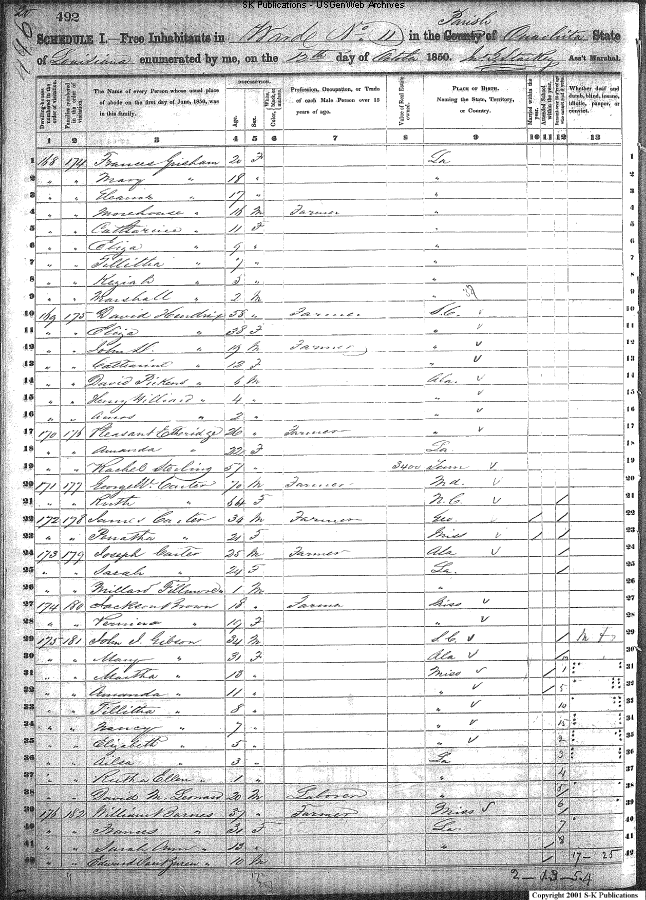 SK Publications - USGenWeb Archives
492
SCHEDULE I.—Free Inhabitants in Ward No 11 in the County Parish of Ouachita State
of Louisiana enumerated by me, on the 12th day of 1850. Ass't Marshal.
Dwelling-houses numbered in the order of visitation.
Families numbered in the order of visitation.
The Name of every Person whose usual place of abode on the first day of June, 1850, was in this family.
DESCRIPTION.
Age.
Sex.
Color, White, black, or mulatto.
Profession, Occupation, or Trade of each Male Person over 15 years of age.
Value of Real Estate owned.
PLACE OF BIRTH. Naming the State, Territory, or Country.
Married within the year.
Attended School within the year.
Whether deaf and dumb, blind, insane, idiotic, pauper, or convict.
1 2 3 4 5 6 7 8 9 10 11 12 13
1 168 174 Frances Grisham 20 F La 1
2 " " Mary " 18 " " 2
3 " " Eleanor " 17 " " 3
4 " " Morehouse " 16 M Farmer " 4
5 " " Catharine " 11 F " 5
6 " " Eliza " 9 " " 6
7 " " Tillitha " 7 " " 7
8 " " Keziah " 5 " " 8
9 " " Marshall " 2 M " 9
10 169 175 David Hendrix 38 " Farmer S.C. 10
11 " " Eliza " 38 F " 11
12 " " John W. " 19 M Farmer " 12
13 " " Catharine " 12 F " 13
14 " " David Pickens " 6 M Ala. 14
15 " " Henry Williard " 4 " " 15
16 " " Amos " 2 " " 16
17 170 176 Pleasant Etheridge 26 " Farmer " 17
18 " " Amanda " 22 F La. 18
19 " " Rachel Sterling 57 " 3400 Tenn 19
20 171 177 George W. Carter 70 M Farmer Md. 20
21 " " Ruth " 64 F N.C. 1 21
22 172 178 James Carter 30 M Farmer Geo 1 1 22
23 " " Penatha " 21 F Miss 1 1 23
24 173 179 Joseph Carter 25 M Farmer Ala 1 24
25 " " Sarah " 24 F La. 1 25
26 " " Millard Fillmore " 1 M " 26
27 174 180 Jackson Brown 18 " Farmer Miss 27
28 " " " 19 F " 28
29 175 181 John J. Gibson 34 M S.C. 1 29
30 " " Mary " 31 F Ala 1 30
31 " " Martha " 13 " Miss 1 31
32 " " Amanda " 11 " " 1 32
33 " " Tillitha " 8 " " 33
34 " " Nancy " 7 " " 34
35 " " Elizabeth " 5 " " 35
36 " " Ailsa " 3 " La 36
37 " " Rutha Ellen " 1 " " 37
38 " " David M. Leonard 20 M Laborer " 38
39 176 182 William Barnes 37 " Farmer Miss 39
40 " " Frances " 31 F La. 40
41 " " Sarah Ann " 13 " " 1 41
42 " " Edward " 10 M " 1 17-25 42
2-13-54
Copyright 2001 S-K Publications